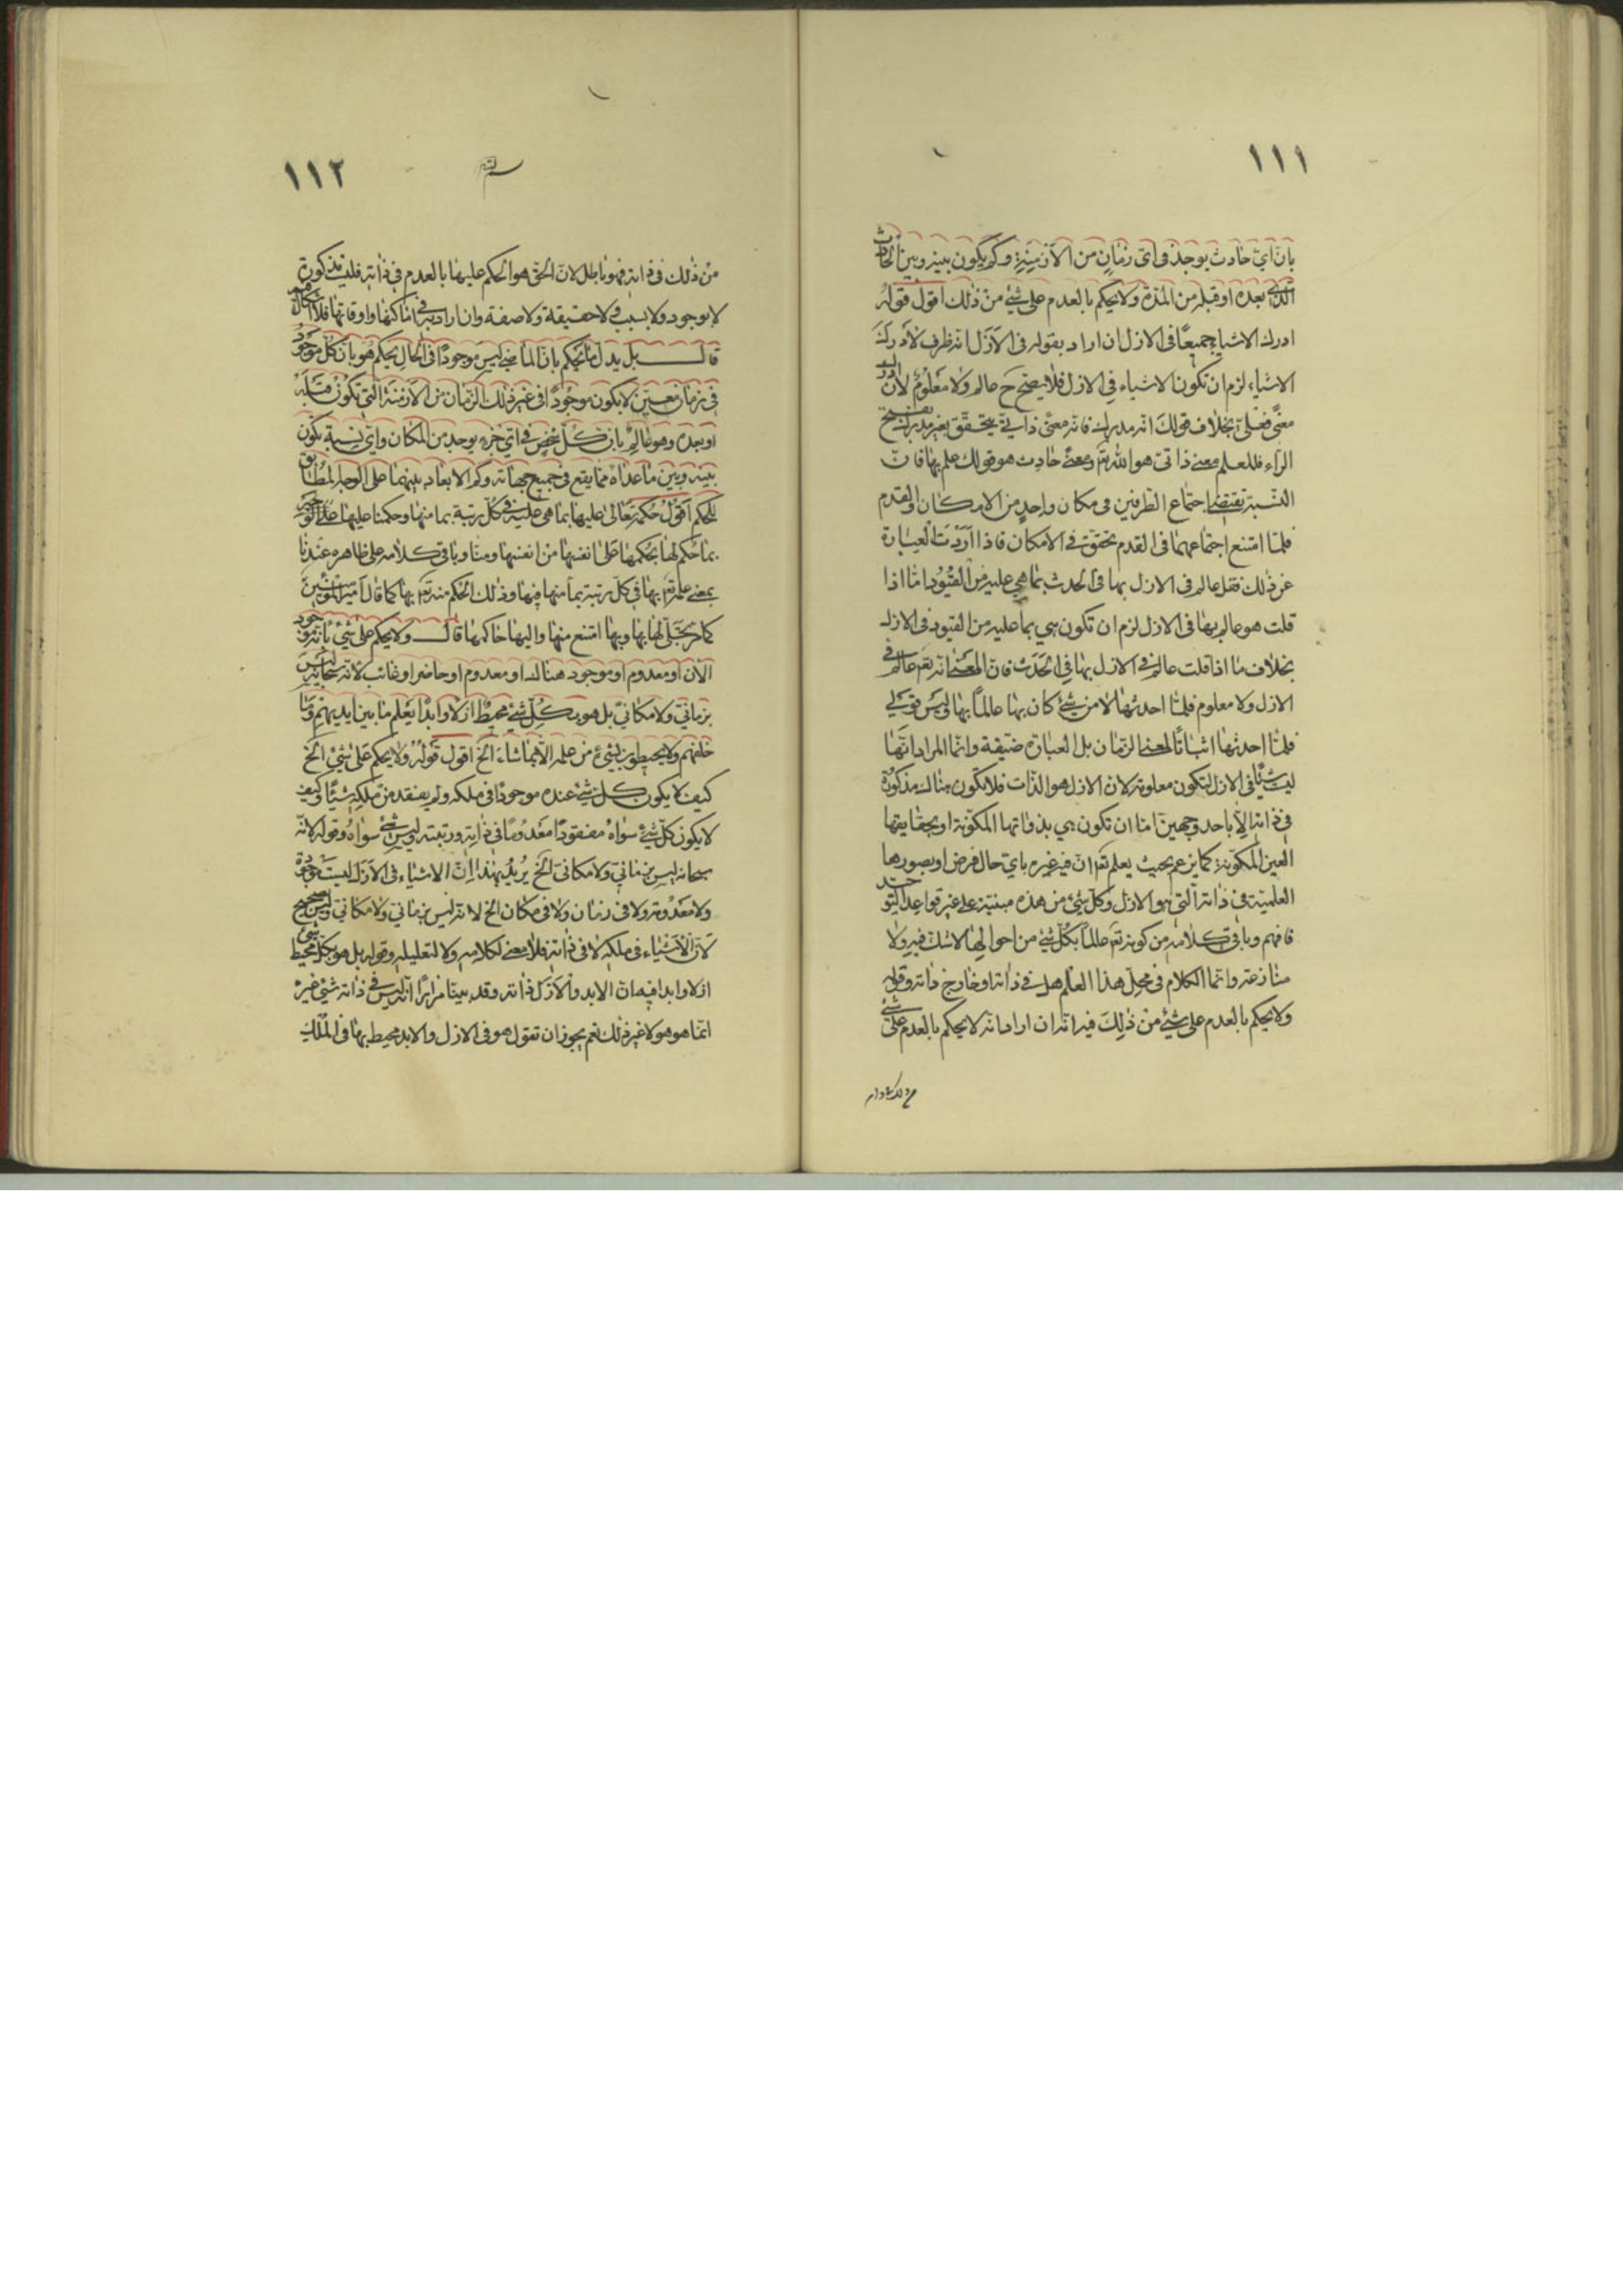 ١١١
بانّ ايّ حادث يوجد في اي زمان من الازمنة وكم يكون بينه وبين الحادث
الذي بعده او قبله من المدة ولا يحكم بالعدم على شئ من ذلك اقول قوله
ادرك الاشياء جميعًا في الازل ان اراد بقوله في الازل انه ظرف لادرك
الاشياء لزم ان تكون الاشياء في الازل فلا يصح ح عالم ولا معلوم لان ادرك
معنى فعلىّ بخلاف قولك انه مدرك فانه معنى ذاتي يتحقق بغير مدرك بفتح
الراء فللعلم معنى ذاتى هو الله تع ومعنى حادث هو قولك علم بها فانّ
النسبة تقتضى اجتماع الطرفين في مكان واحد من الامكان والقدم
فلمّا امتنع اجتماعهما في القدم تحققت في الامكان فاذا اردت العبارة
عن ذلك فقل عالم في الازل بها في الحدث بما هي عليه من القيود امّا اذا
قلت هو عالم بها في الازل لزم ان تكون هي بما عليه من القيود في الازل
بخلاف ما اذا قلت عالم في الازل بها في الحدث فان المعنى انه تع عالم في
الازل ولا معلوم فلمّا احدثها لا من شئ كان بها عالمًا بها وليس قولي
فلمّا احدثها اثباتًا لمعنى الزمان بل العبارة ضيقة وانّما المراد انّها
ليست شيئًا في الازل لتكون معلومة لان الازل هو الذات فلا تكون هنالك مذكورة
في ذاته الّا باحد وجهين امّا ان تكون هي بذواتها المكوّنة او بحقايقها
الغير المكوّنة كما يزعم بحيث يعلم تع انّ فيه غيره بايّ حال فرض او بصورها
العلمية في ذاته التي هو الازل وكل شئ من هذه مبنيّة على غير قواعد التوحيد
فافهم وباقي كلامه من كونه تع عالمًا بكلّ شئ من احوالها لا شك فيه ولا
منازعة وانّما الكلام في محلّ هذا العلم هل في ذاته او خارج ذاته وقوله
ولا يحكم بالعدم على شئ من ذلك فيه انّه ان اراد انّه لا يحكم بالعدم على شئ
١١٢
من ذلك في ذاته فهو باطل لانّ الحق هو الحكم عليها بالعدم في ذاته فليست مذكورة
لا بوجود ولا بسبب ولا حقيقة ولا صفة وان اراد به في اماكنها واوقاتها فلا اشكال فيه
قال بل بدل ما يحكم بانّ الماضي ليس موجودًا في الحال يحكم هو بانّ كلّ موجود
في زمان معيّن لا يكون موجودًا في غير ذلك الزمان من الازمنة التي تكون قبله
او بعده وهو عالم بانّ كلّ شخص في اي جزء يوجد من المكان واي نسبة تكون
بينه وبين ما عداه ممّا يقع في جميع جهاته وكم الابعاد بينهما على الوجه المطابق
للحكم اقول حكمه تعالى عليها بما هي عليه في كلّ رتبة بما منها وحكمنا عليها على الوجه
بما حكم لها بحكمها على انفسها من انفسها ومنّا وباقي كلامه على ظاهره عندنا
بمعنى علمه تع بها في كلّ رتبة بما منها فيها وذلك الحكم منه تع بها كما قال امير المؤمنين
كما مرّ تجلّى لها بها وبها امتنع منها واليها حاكمها قال ولا يحكم على شئ بانّه موجود
الان او معدوم او موجود هناك او معدوم او حاضر او غائب لانّه سبحانه ليس
بزمانيّ ولا مكانيّ بل هو بكلّ شئ محيط ازلًا وابدًا يعلم ما بين ايديهم وما
خلفهم ولا يحيطون بشئ من علمه الّا بما شاء الخ اقول قوله ولا يحكم على شئ الخ
كيف لا يكون كلّ شئ عنده موجودًا في ملكه ولم يفتقد من ملكه شيئًا وكيف
لا يكون كلّ شئ سواه مفقودًا معدومًا في ذاته ورتبته وليس شئ سواه وقوله لانّه
سبحانه ليس بزمانيّ ولا مكاني الخ يريد بهذا انّ الاشياء في الازل ليست موجودة
ولا معدومة ولا في زمان ولا في مكان الخ لانّه ليس بزماني ولا مكاني وليس بصحيح
لانّ الاشياء في ملكه لا في ذاته فلا معنى لكلامه ولا لتعليله وقوله بل هو بكلّ شئ محيط
ازلا وابدا فيه انّ الابد والازل ذاته وقد بيّنا مرارًا انّه ليس في ذاته شئ غيره
انّما هو هو لا غير ذلك نعم يجوز ان تقول هو في الازل والابد محيط بها في الملك